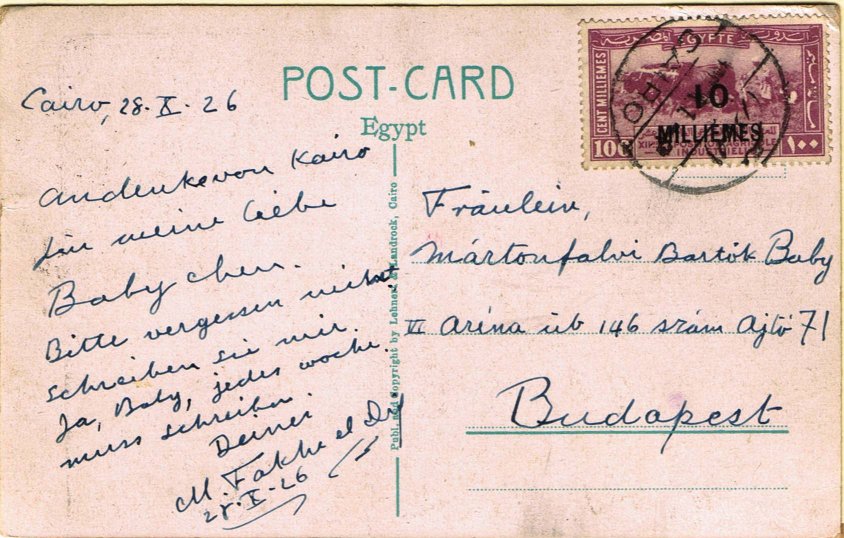 POST-CARD
Egypt
Cairo, 28. X. 26
Andenkevon Kairo
für meine Liebe
Babychen.
Bitte vergessen nicht
schreiben sie mir.
Ja, Baby, jedes woche
muss schreiben.
Deiner
M. Fakhr el Din
28. X. 26
Publ. and Copyright by Lehnert & Landrock, Cairo
EGYPTE
CENT MILLIEMES
10
MILLIEMES
100
١٠٠
CAIRO
Fräulein,
Mártonfalvi Bartók Baby
VI Aréna út 146 szám Ajtó 71
Budapest